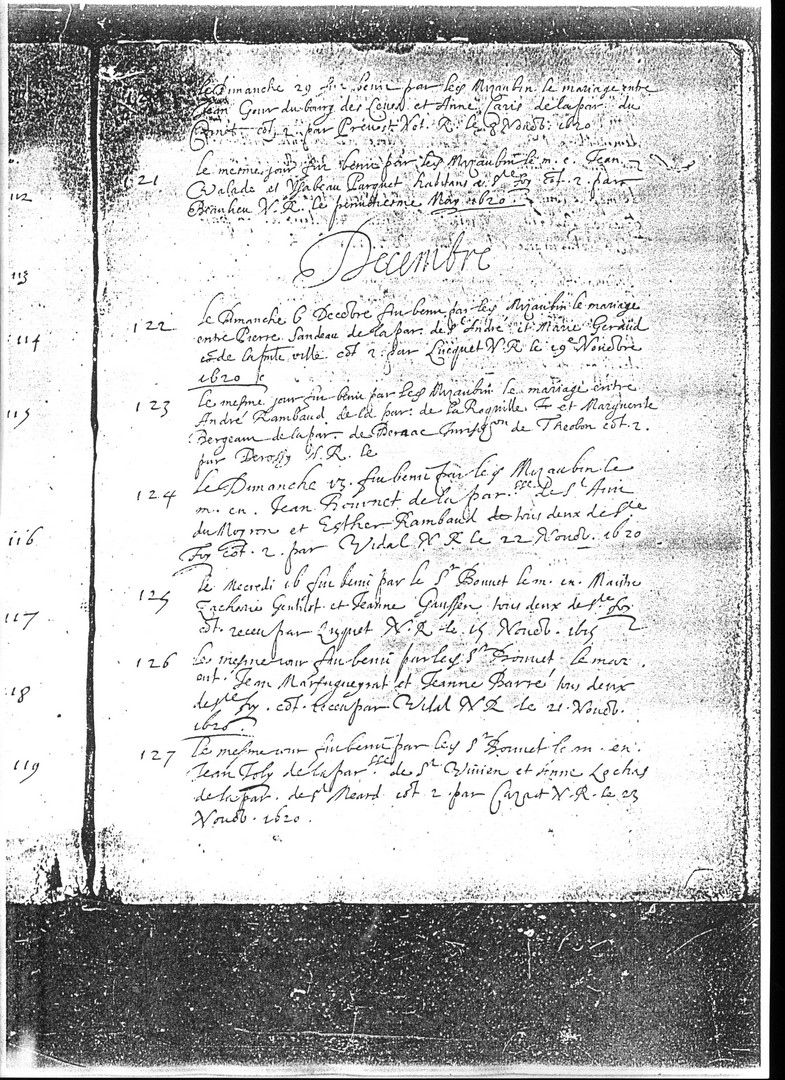 le Dimanche 29 fut beni par led. Mizaubin le mariage entre
Jean Gour du bourg des et Anne Paris de la par. du
cot. 2 par Prevost Not. R. le 8 Novb. 1620
121 le mesme jour fut beni par led. Mizaubin le m. e. Jean
Valade et Ysabeau Parquet habitans a Ste foy cot. 2. par
Beaulieu N. R. le penultiesme May 1620
Decembre
112
113
114
115
116
117
18
119
122 le Dimanche 6 Decēbre fut beni par led. Mizaubin le mariage
entre Pierre Sandeau de la par. de St André et Marie Geraud
de la pnte ville cot 2 par Lucquet N. R. le 19e Novēbre
1620
123 le mesme jour fut beni par led. Mizaubin le mariage entre
André Rambaud de la par. de la Roquille et Marguerite
Bergeau de la par. de Bernac Jurisd.on de Theobon cot. 2.
par Derossy N. R. le
124 le Dimanche 13. fut beni par led. Mizaubin le
m. en. Jean Bounet de la par.sse de St Avit
du Moyron et Esther Rambaud tous deux de Ste
Foy cot. 2. par Vidal N R le 22 Novb. 1620
125 le Mecredi 16 fut beni par le Sr Bonnet le m. en. Maistre
Zacharie Gentilot et Jeanne Gaussen tous deux de Ste foy
cot. receu par Luquet N. R. le 15 Novēb. 1615
126 le mesme jour fut beni par led. Sr Bonnet le mar.
ent. Jean Marfugueyrat et Jeanne Barré tous deux
de Ste foy. cot. receu par Vidal N R le 21. Novēb.
1620.
127 le mesme jour fut beni par led Sr Bonnet le m. en.
Jean Joly de la par.sse de St Vivien et Anne Lochas
de la par. de St Meard cot 2 par Cazact N. R. le 23
Novēb. 1620.